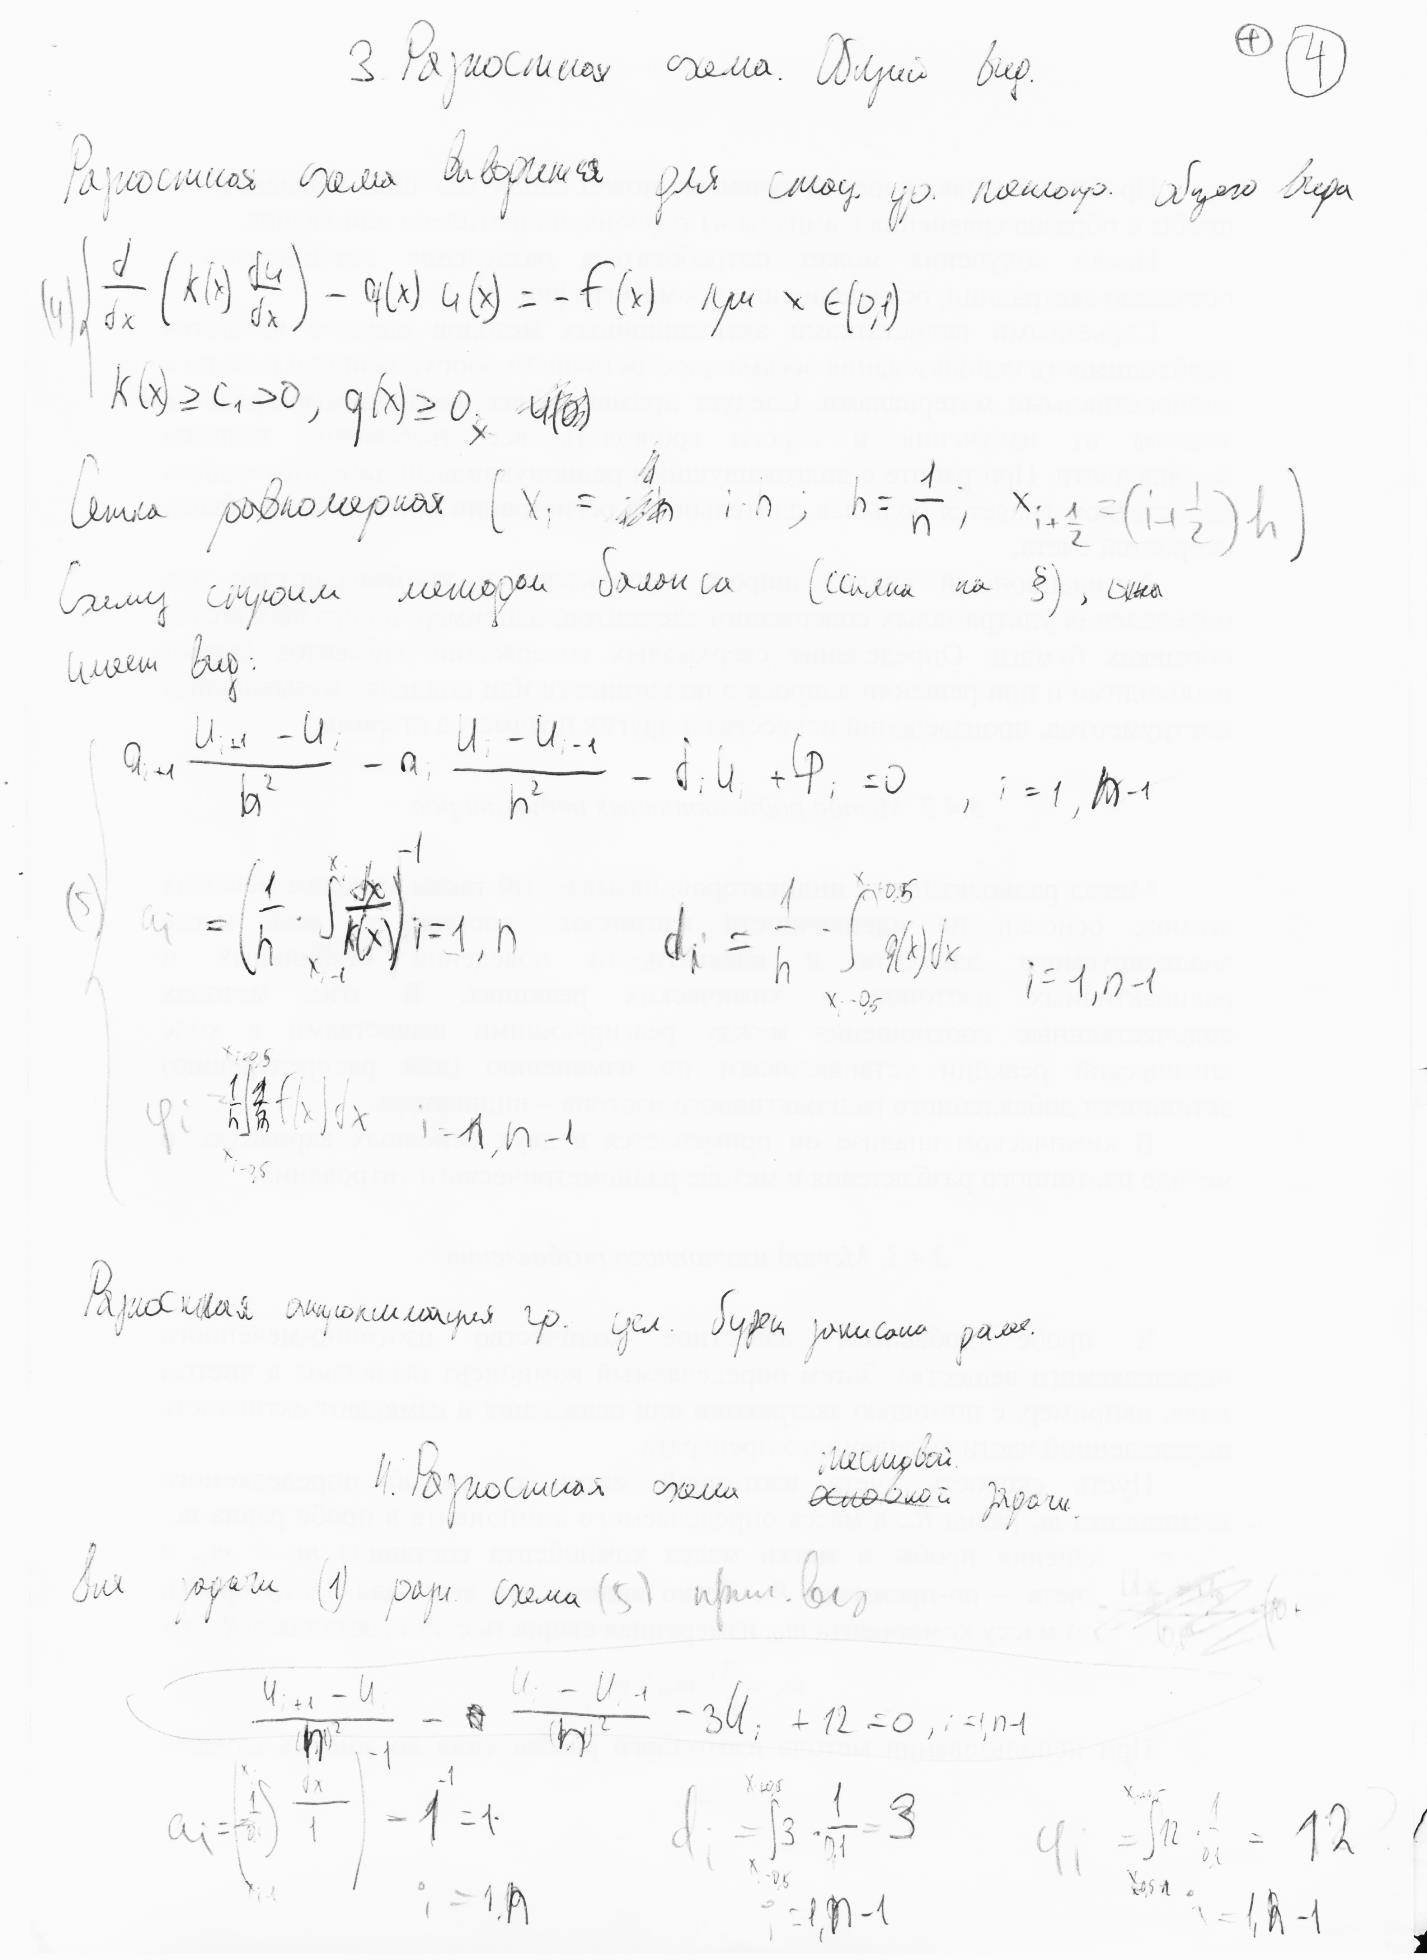 3. Разностная схема. Общий вид. + 4
Разностная схема выводится для стац. ур. теплопр. общего вида
(4) { d/dx (k(x) du/dx) − q(x) u(x) = −f(x) при x ∈ (0,1)
k(x) ≥ c₁ > 0, q(x) ≥ 0
Сетка равномерная ( xᵢ = i h ; h = 1/n ; x_{i+1/2} = (i+1/2) h )
Схему строим методом баланса (ссылка на §), она
имеет вид:
a_{i+1} (u_{i+1} − u_i)/h² − a_i (u_i − u_{i−1})/h² − d_i u_i + φ_i = 0 , i = 1, n−1
(5) a_i = (1/h · ∫_{x_{i−1}}^{x_i} dx/k(x))^{−1} i = 1, n d_i = 1/h ∫_{x_{i−0,5}}^{x_{i+0,5}} q(x) dx i = 1, n−1
φ_i = 1/h ∫_{x_{i−0,5}}^{x_{i+0,5}} f(x) dx i = 1, n−1
Разностная аппроксимация гр. усл. будет записана далее.
4. Разностная схема тестовой задачи.
Для задачи (1) разн. схема (5) прим. вид
(u_{i+1} − u_i)/(h)² − (u_i − u_{i−1})/(h)² − 3u_i + 12 = 0 , i = 1, n−1
a_i = (1/0,1 ∫_{x_{i−1}}^{x_i} dx/1)^{−1} = 1^{−1} = 1. d_i = ∫_{x_{i−0,5}}^{x_{i+0,5}} 3 · 1/0,1 = 3 φ_i = ∫_{x_{i−0,5}}^{x_{i+0,5}} 12 · 1/0,1 = 12
i = 1, n i = 1, n−1 i = 1, n−1